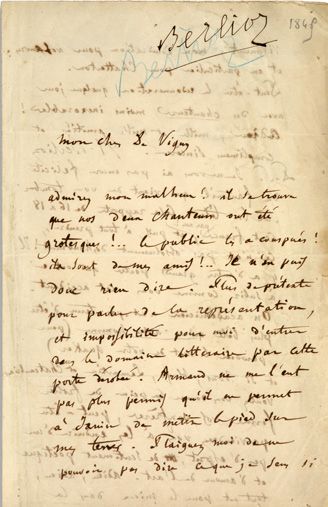 Berlioz
1849
mon cher De Vigny
admirez mon malheur! il se trouve
que nos deux chanteurs ont été
grotesques!... le public les a conspués!
ils sont de mes amis!.. Je n'en puis
donc rien dire. Plus de prétexte
pour parler de la représentation,
et impossibilité pour moi d'entrer
dans le domaine littéraire par cette
porte dérobée. Armand ne me l'eut
pas plus permis qu'il ne permet
à Janin de mettre le pied sur
mes terres. Plaignez moi de ne
pouvoir pas dire ce que je sens si